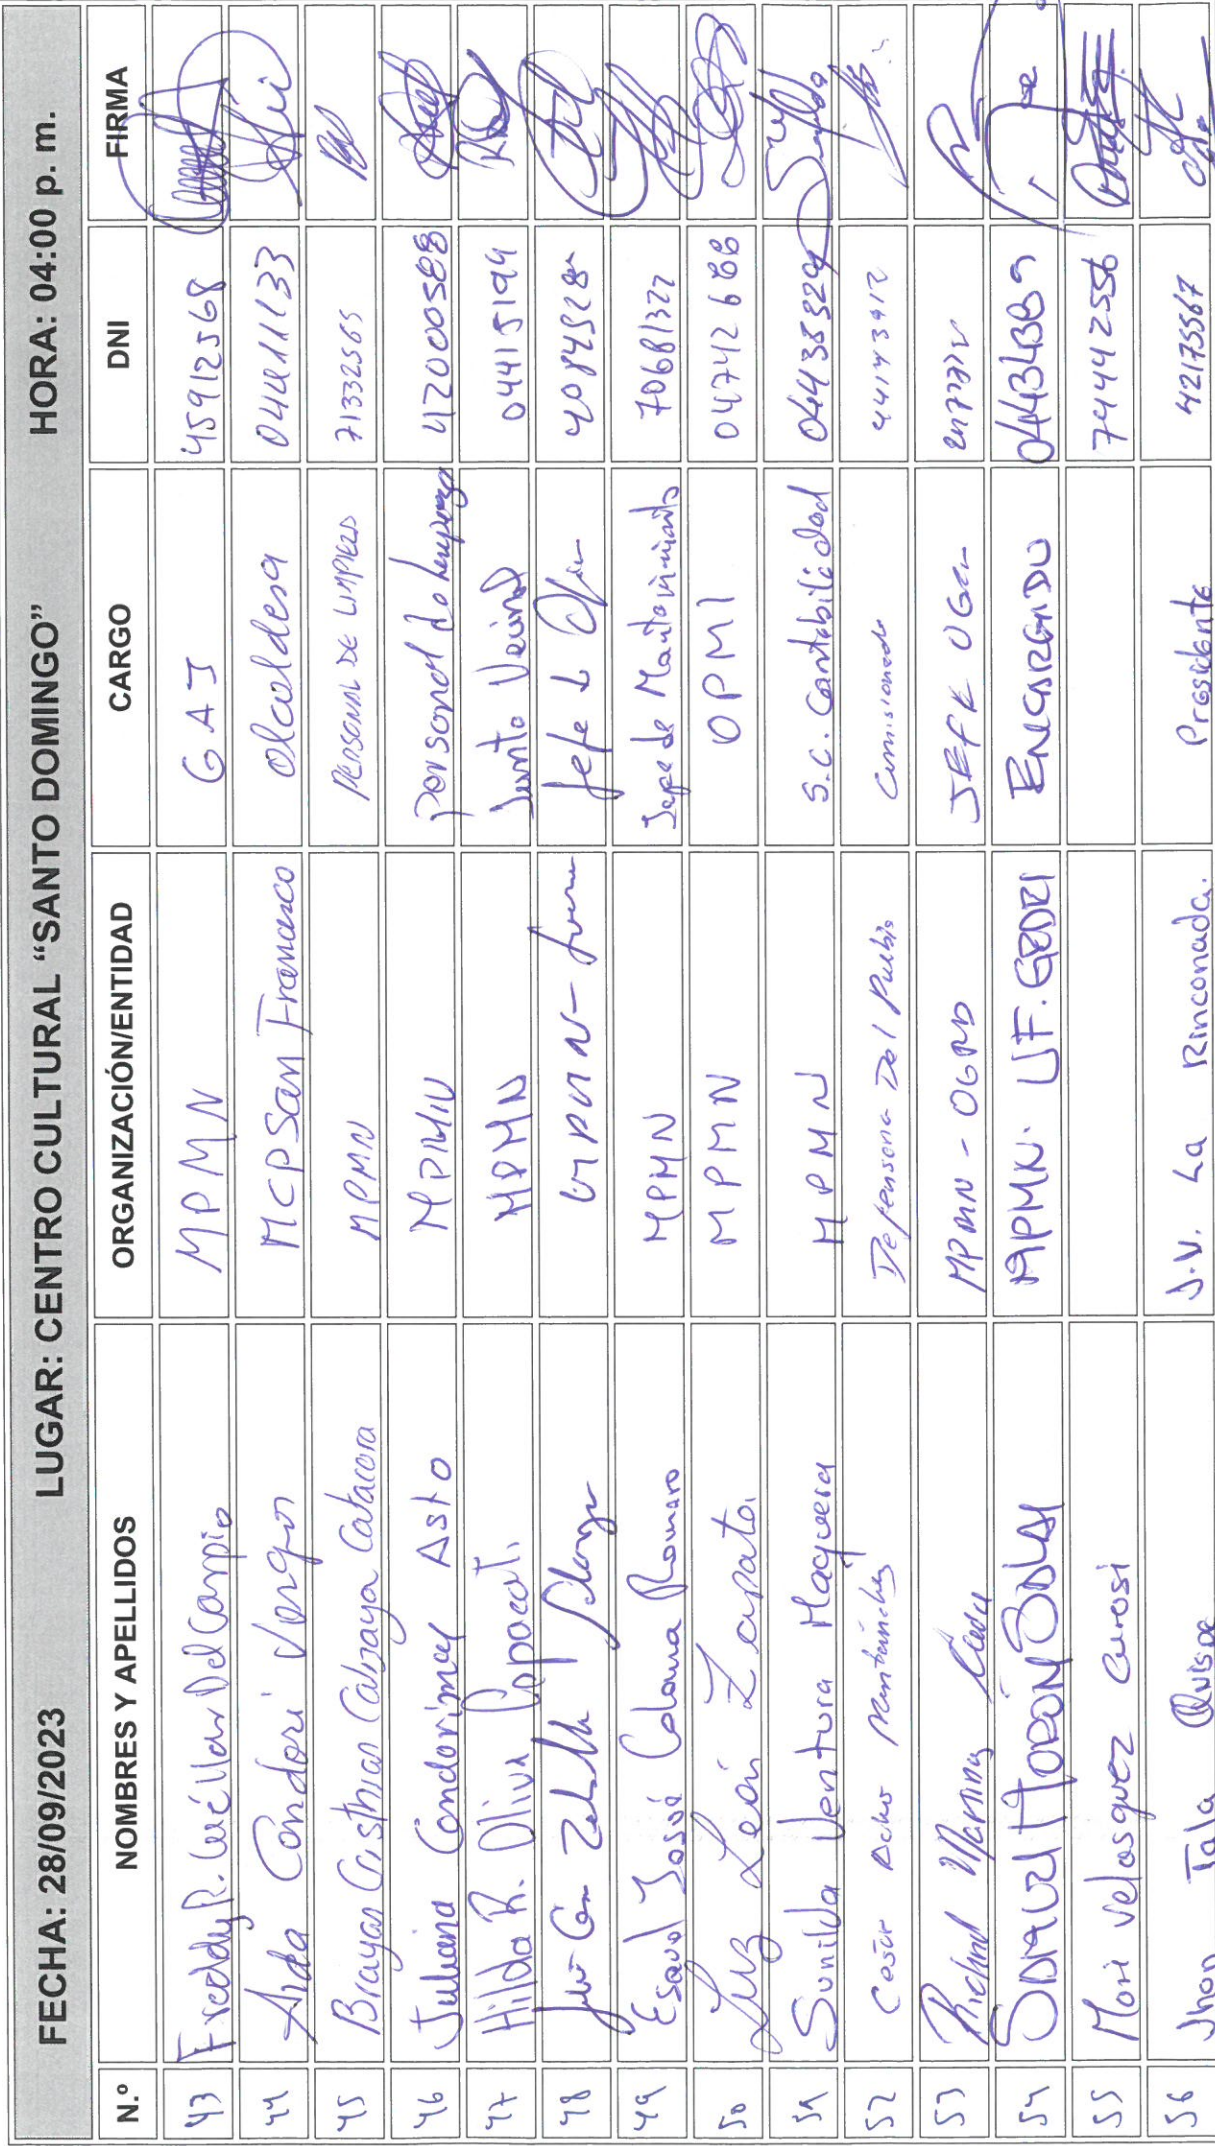 FECHA: 28/09/2023 LUGAR: CENTRO CULTURAL “SANTO DOMINGO” HORA: 04:00 p. m.
N.º NOMBRES Y APELLIDOS ORGANIZACIÓN/ENTIDAD CARGO DNI FIRMA
43 Freddy R. Cuéllar Del Carpio MPMN GAJ 45912568
44 Aida Condori Vargas MCP San Francisco alcaldesa 04411133
45 Brayan Cristhian Calizaya Catacora MPMN PERSONAL DE LIMPIEZA 71332565
46 Juliana Condorimay Asto MPMN personal de limpieza 41200588
47 Hilda R. Oliva Copacati. MPMN Junta Vecinal 04415194
48 Jefe de
49 Esaud Josué Coloma Romero MPMN Jefe de Mantenimiento 70681322
50 Luz León Zapata. MPMN OPMI 04742688
51 Sunilda Ventura Maquera MPMN S.C. Contabilidad 04435329
52 Cesar Acho Defensoria Del Pueblo Comisionado 44143912
53 Richard MPMN - OGRD JEFE
54 MPMN. UF. GEDRI ENCARGADO
55 Mori Velasquez Curosi 74442556
56 Jhon Tala Quispe J.V. La Rinconada. Presidente 42175567